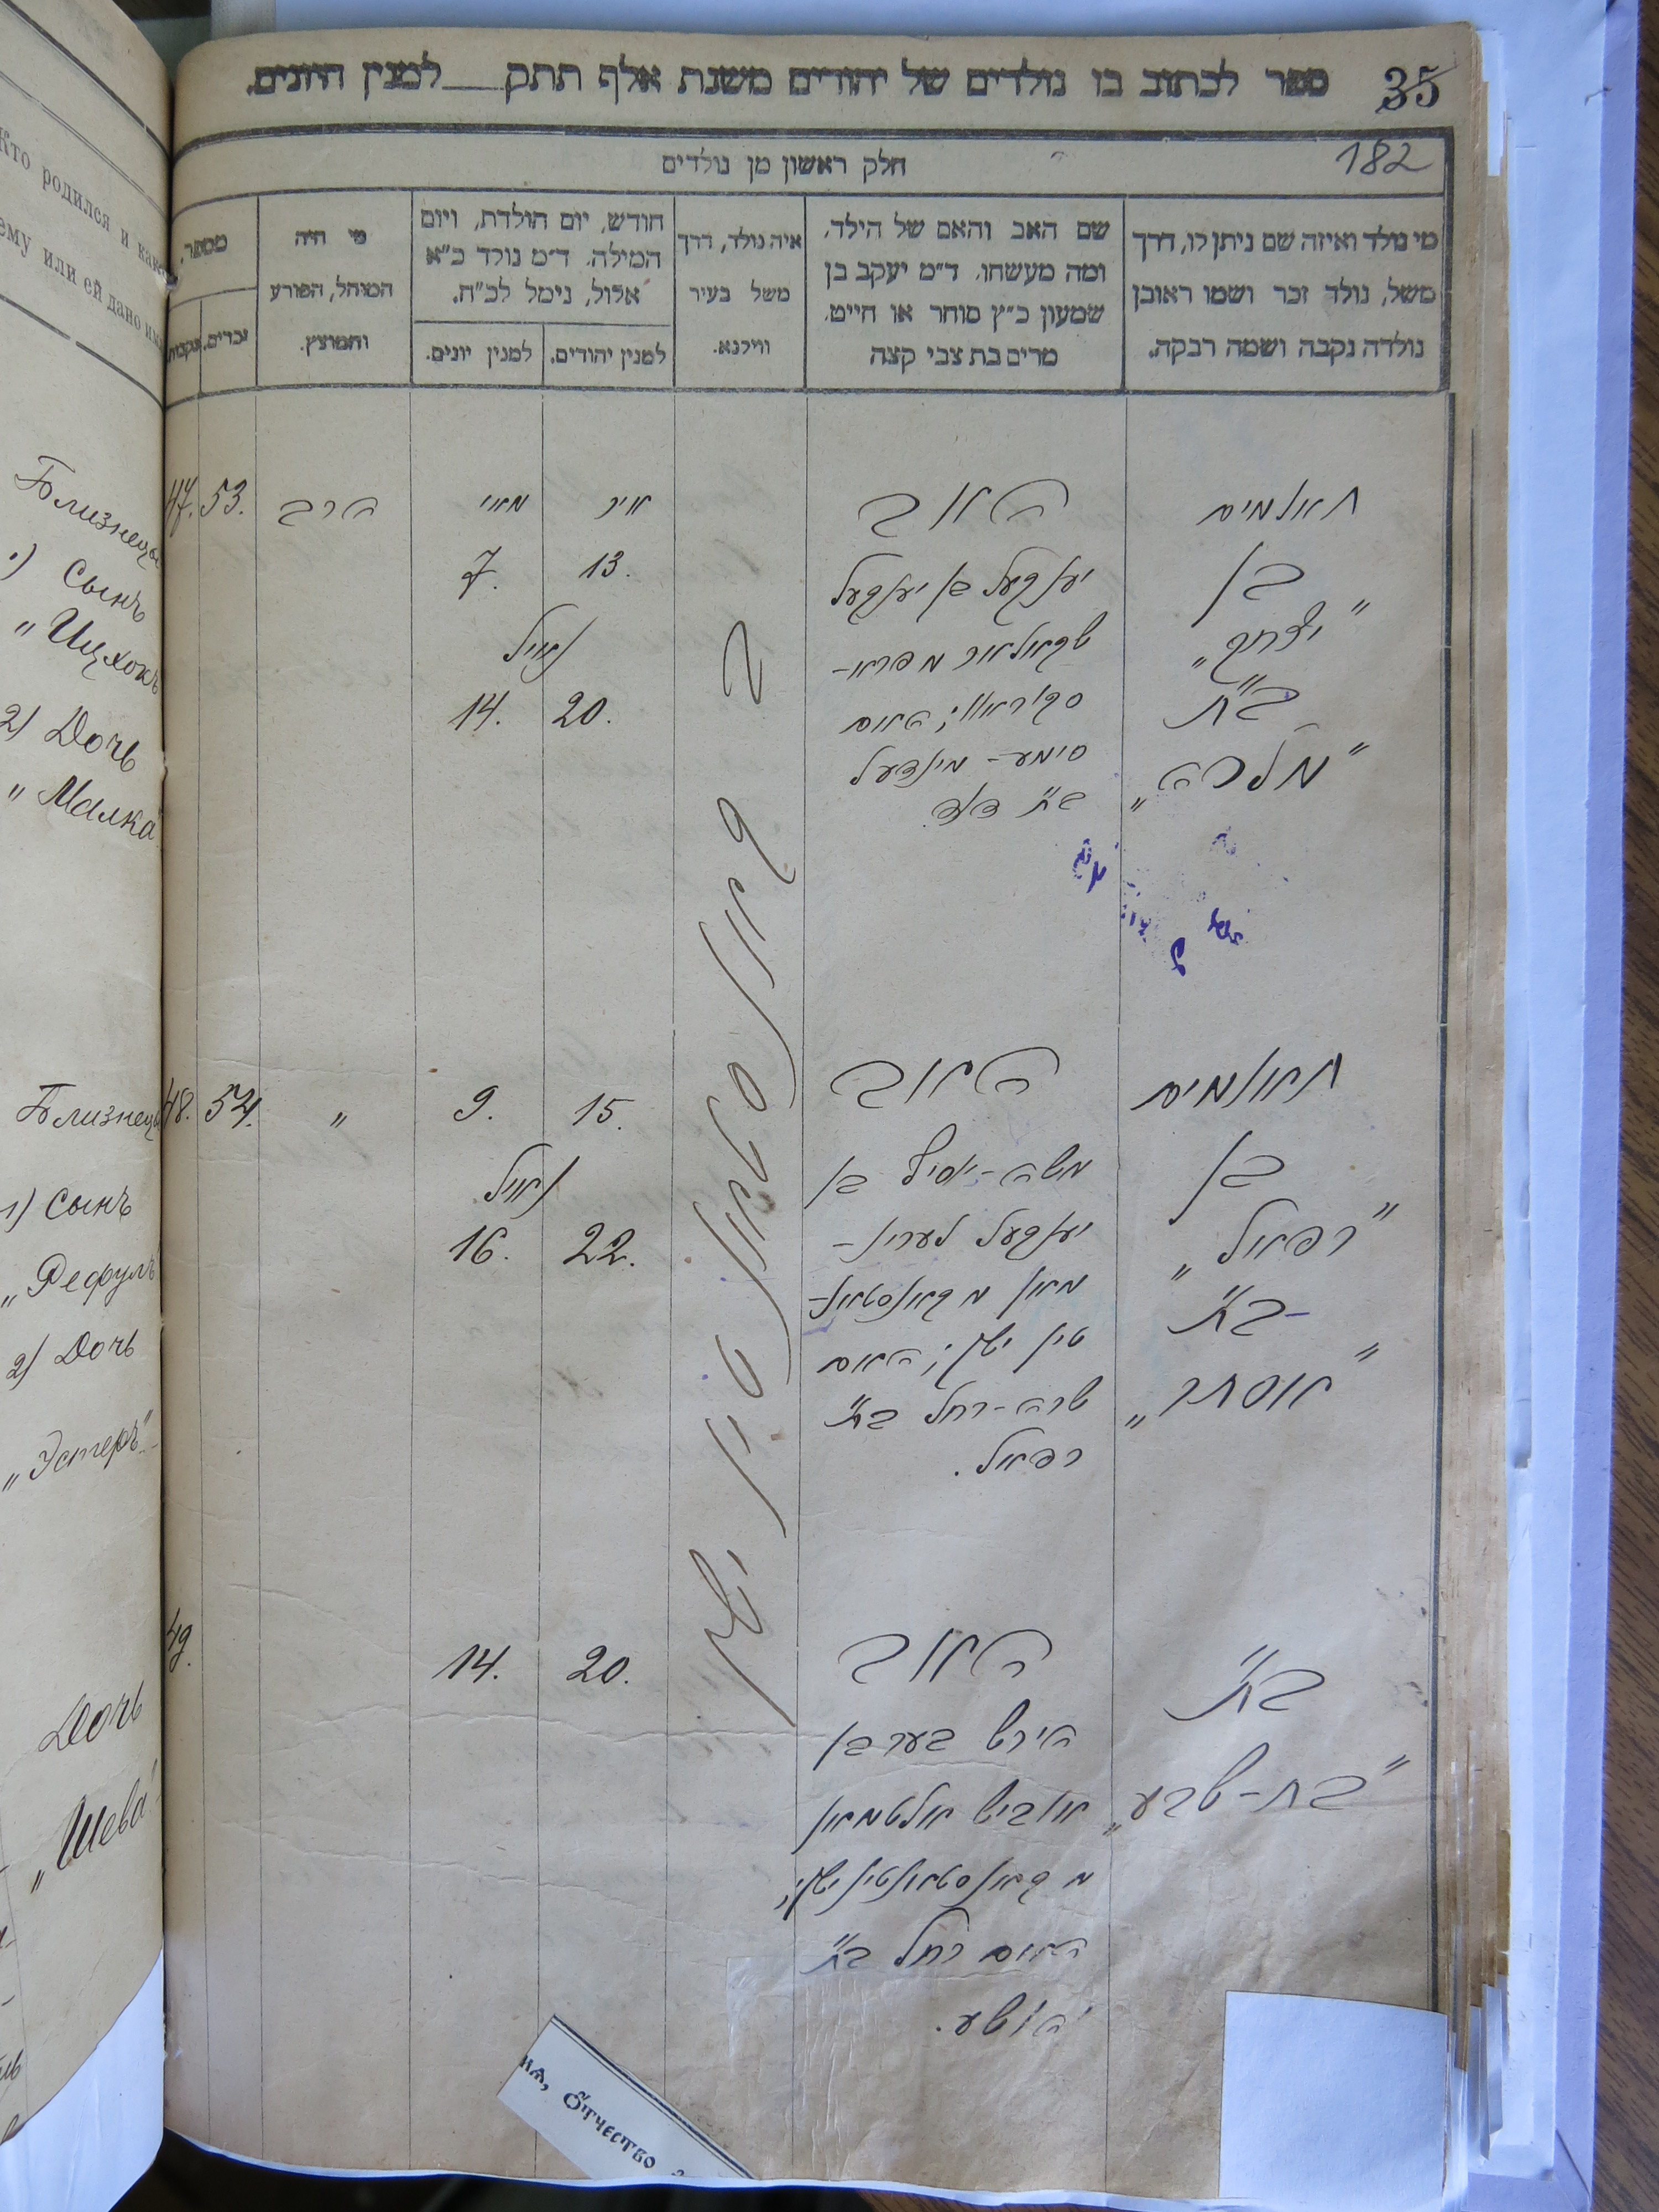 ספר לכתוב בו נולדים של יהודים משנת אלף תתק___למנין היונים.
35
182
חלק ראשון מן נולדים
מי נולד ואיזה שם ניתן לו, דרך
משל, נולד זכר ושמו ראובן
נולדה נקבה ושמה רבקה.
שם האב והאם של הילד,
ומה מעשהו, ד״מ יעקב בן
שמעון כ״ץ סוחר או חייט,
מרים בת צבי קצה
איה נולד, דרך
משל בעיר
ווילנא.
חודש, יום הולדת, ויום
המילה, ד״מ נולד כ״א
אלול, נימל לכ״ח.
למנין יהודים.
למנין יונים.
מי היה
המוהל, הפורע
והמוצץ.
מספר,
זכרים.
נקבות
תאומים
בן
"יצחק„
בת
"מלכה„
האב
יאנקעל בן יאנקעל
סימע-מינדעל
בת דוד
אייר
13.
נימול
20.
מאי
7.
14.
הרב
53.
47.
תאומים
בן
"רפאל„
בת
"אסתר„
האב
משה-יוסף בן
יאנקעל לערין-
מאן מקאנסטאנ-
טין ישן; האם
שרה-רחל בת
רפאל.
15.
נימול
22.
9.
16.
"
54.
48.
בת
"בת-שבע„
האב
הירש בער בן
אלטמאן
מקאנסטאנטין ישן;
האם רחל בת
יהושע.
20.
14.
49.
קאנסטאנטין ישן
Кто родился и какое
ему или ей дано имя
Близнецы
1) Сынъ
„Ицхокъ
2) Дочь
„Малка"
Близнецы
1) Сынъ
„Рефулъ
2) Дочь
„Эстеръ"
Дочь
„Шева"
Отчество